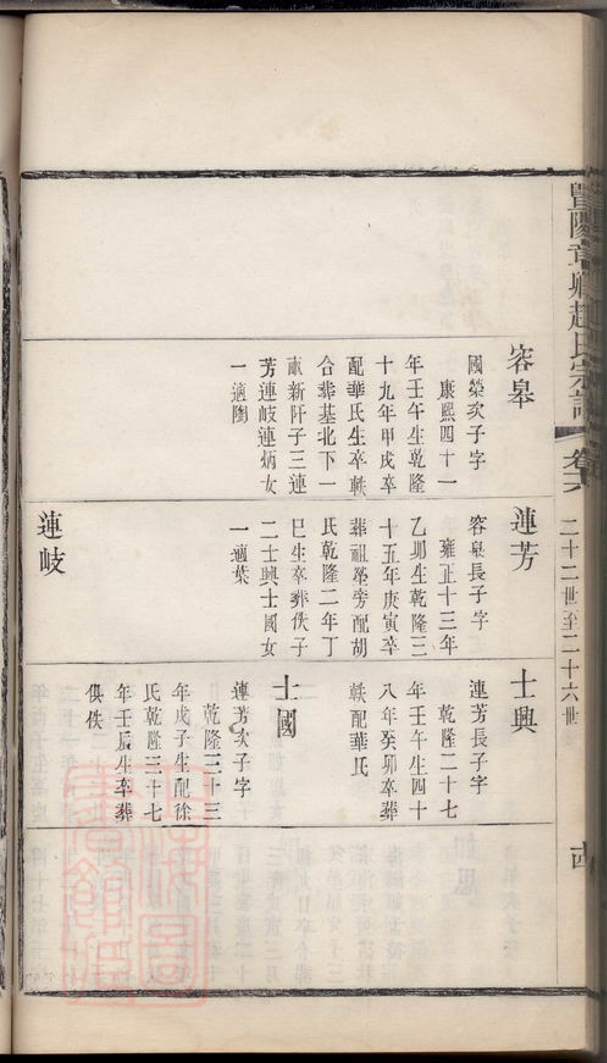 暨陽章卿趙氏宗譜
卷六
二十二世至二十六世
容皋
國榮次子字
康熙四十一
年壬午生乾隆
十九年甲戌卒
配華氏生卒軼
合葬基北下一
畝新阡子三連
芳連岐連炳女
一適陶
蓮芳
容皋長子字
雍正十三年
乙卯生乾隆三
十五年庚寅卒
葬祖塋旁配胡
氏乾隆二年丁
巳生卒葬佚子
二士興士國女
一適葉
蓮岐
士興
連芳長子字
乾隆二十七
年壬午生四十
八年癸卯卒葬
軼配華氏
士國
連芳次子字
乾隆三十三
年戊子生配徐
氏乾隆三十七
年壬辰生卒葬
俱佚